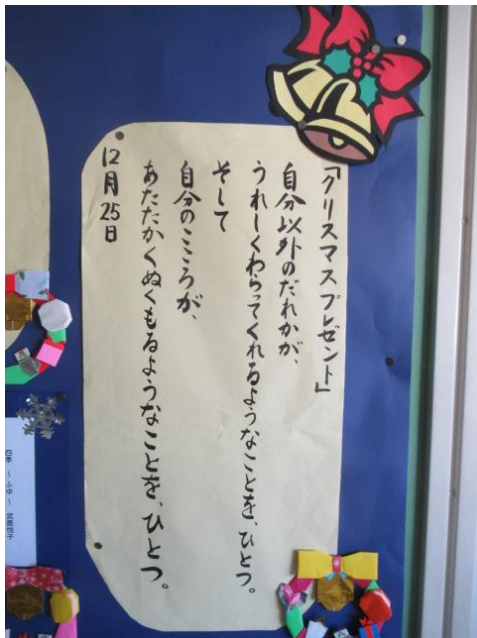 「クリスマスプレゼント」
自分以外のだれかが、
うれしくわらってくれるようなことを、ひとつ。
そして
自分のこころが、
あたたかくぬくもるようなことを、ひとつ。
12月25日
四季 ～ふゆ～ 武鹿悦子